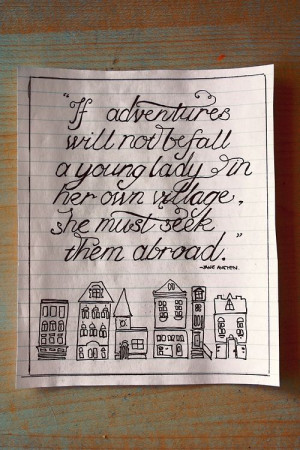 "If adventures
will not befall
a young lady in
her own village,
she must seek
them abroad."
-JANE AUSTEN.